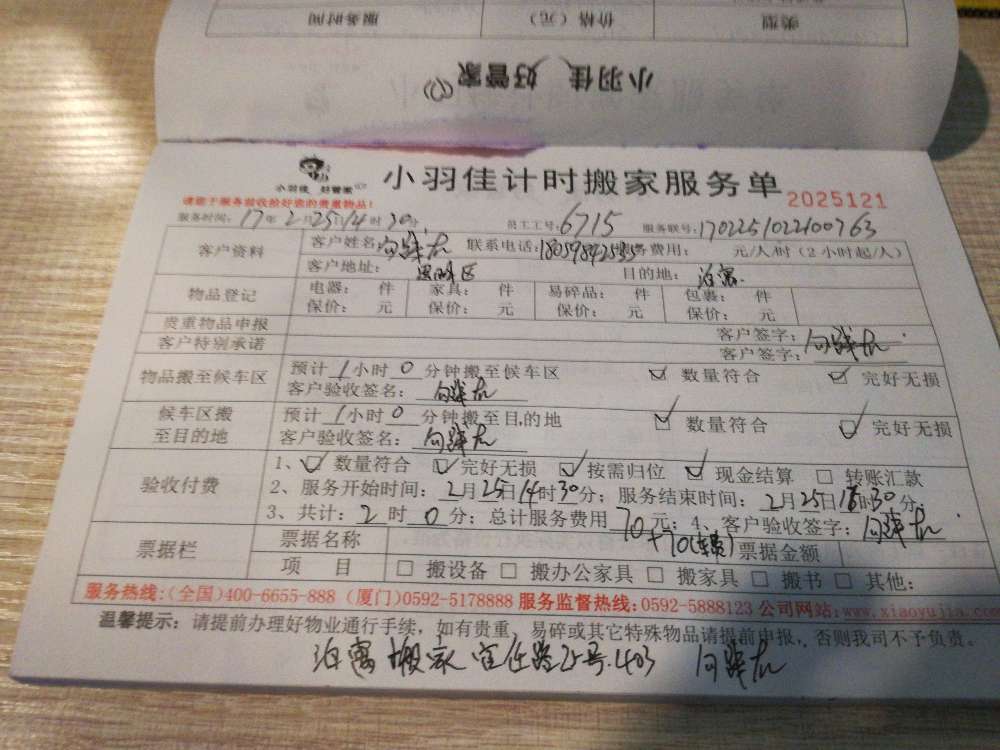 类型 价格（元） 服务时间
小羽佳 好管家
小羽佳 好管家
小羽佳计时搬家服务单 2025121
请您于服务前收拾好您的贵重物品!
服务时间: 17年2月25日14时30分 员工工号: 6715 服务联号: 170225102200763
客户资料 客户姓名: 联系电话: 费用: 元/人/时（2小时起/人）
客户地址: 思明区 目的地: 泊寓
物品登记 电器: 件 家具: 件 易碎品: 件 包裹: 件
保价: 元 保价: 元 保价: 元 保价: 元
贵重物品申报 客户签字:
客户特别承诺 客户签字:
物品搬至候车区 预计1小时0分钟搬至候车区 数量符合 完好无损
客户验收签名:
候车区搬至目的地 预计1小时0分钟搬至目的地 数量符合 完好无损
客户验收签名:
验收付费 1、数量符合 完好无损 按需归位 现金结算 转账汇款
2、服务开始时间: 2月25日14时30分; 服务结束时间: 2月25日16时30分
3、共计: 2时0分; 总计服务费用70元; 4、客户验收签字:
+70
票据栏 票据名称 票据金额
项 目 搬设备 搬办公家具 搬家具 搬书 其他:
服务热线:(全国)400-6655-888 (厦门)0592-5178888 服务监督热线:0592-5888123 公司网站:www.xiaoyujia.com
温馨提示: 请提前办理好物业通行手续, 如有贵重、易碎或其它特殊物品请提前申报, 否则我司不予负责。
泊寓搬家 403